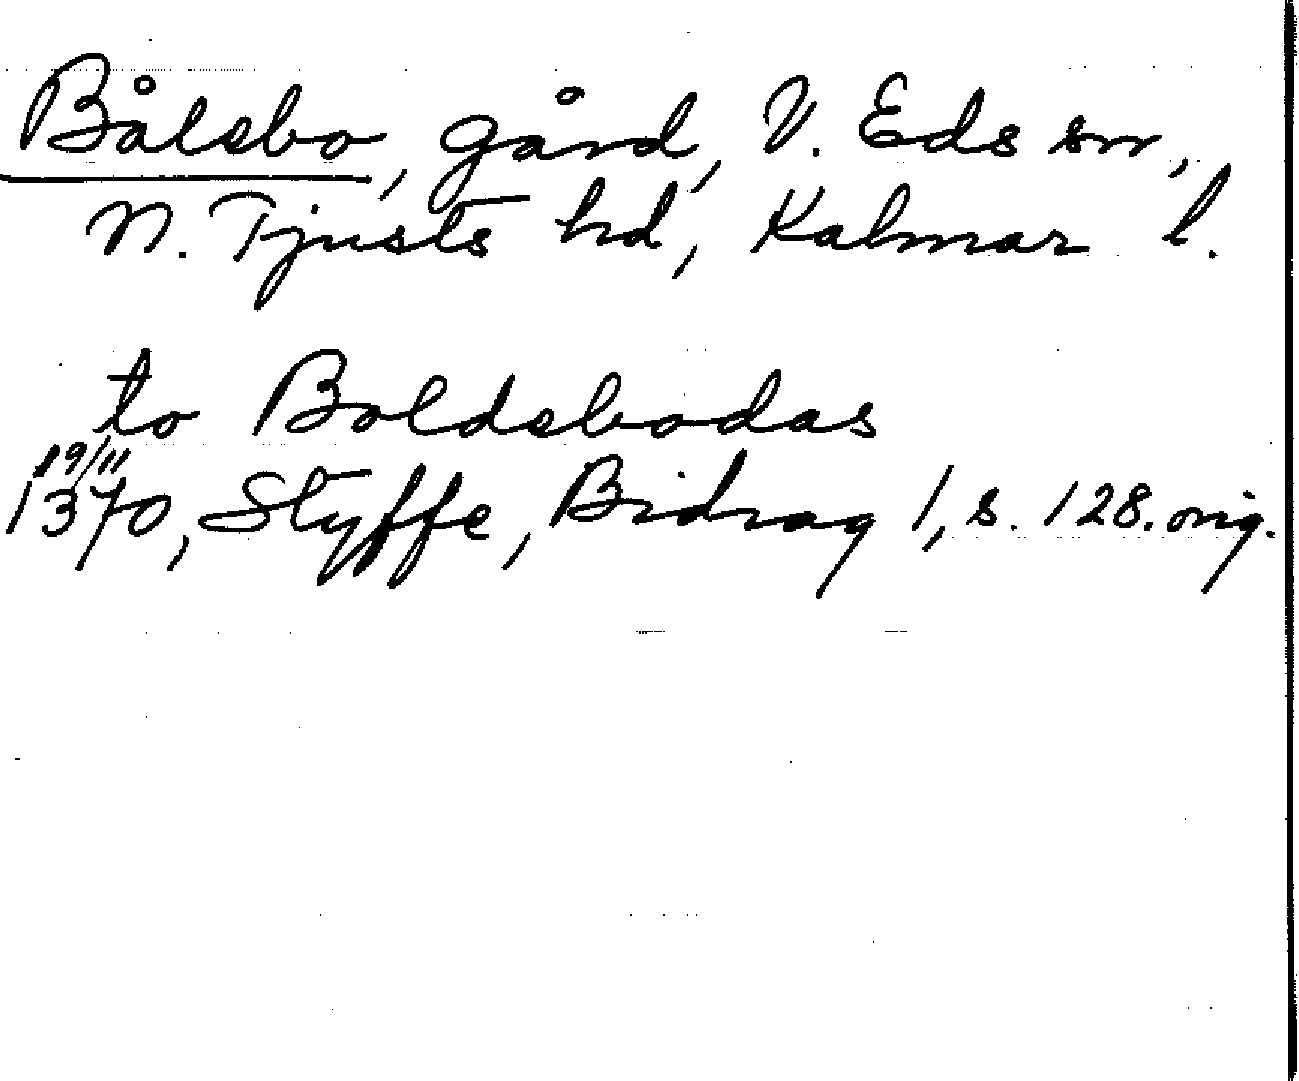 Bålsbo, gård, V. Eds sn,
N. Tjusts hd, Kalmar l.
to Boldsbodas
19/11
1370, Styffe, Bidrag 1, s. 128. orig.